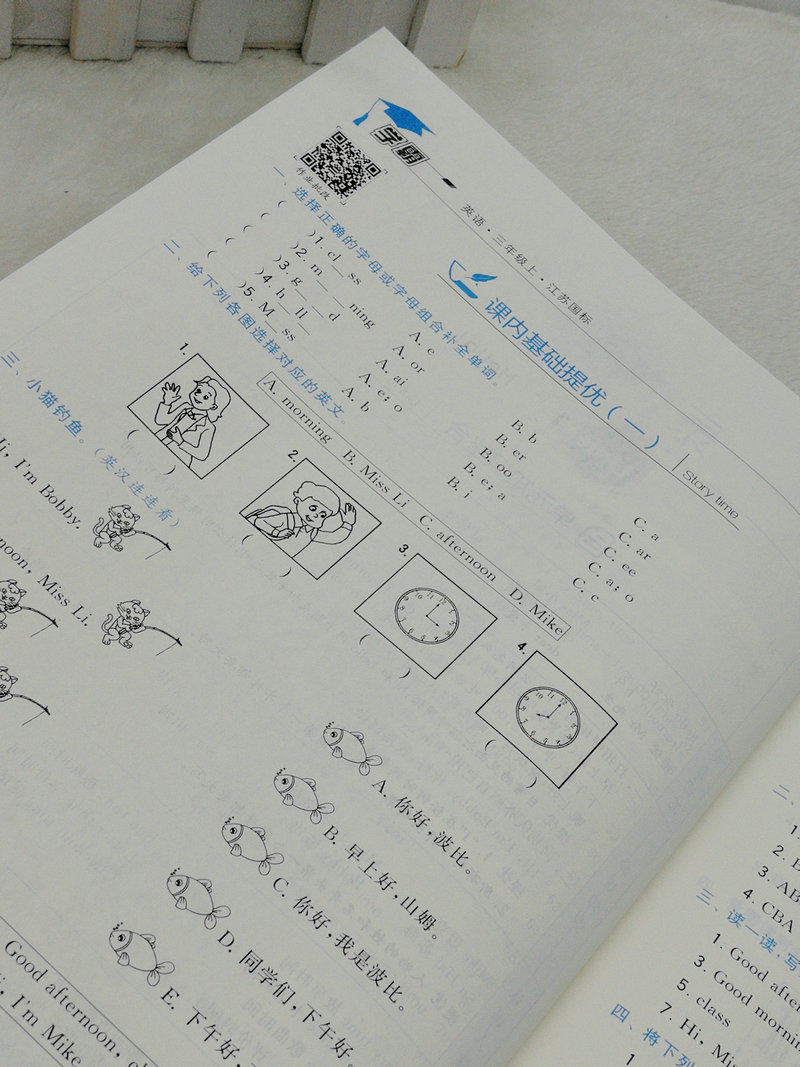 学霸
作业批改
英语·三年级上·江苏国标
课内基础提优(一)
Story time
一、选择正确的字母或字母组合补全单词。
(    )1. cl__ss    A. e    B. b    C. a
(    )2. m____ning    A. or    B. er    C. ar
(    )3. g____d    A. ai    B. oo    C. ee
(    )4. h__ll__    A. e; o    B. e; a    C. a; o
(    )5. M__ss    A. b    B. i    C. e
二、给下列各图选择对应的英文。
A. morning    B. Miss Li    C. afternoon    D. Mike
1.    2.    3.    4.
(    )    (    )    (    )    (    )
三、小猫钓鱼。(英汉连连看)
I'm Bobby.
Miss Li.
A. 你好,波比。
B. 早上好,山姆。
C. 你好,我是波比。
D. 同学们,下午好。
E. 下午好,
Good afternoon,
I'm Mike
二、
1.
2.
3. AB
4. CBA
三、读一读,写
1. Good
3. Good
5. class
7. Hi,
四、将下列
1